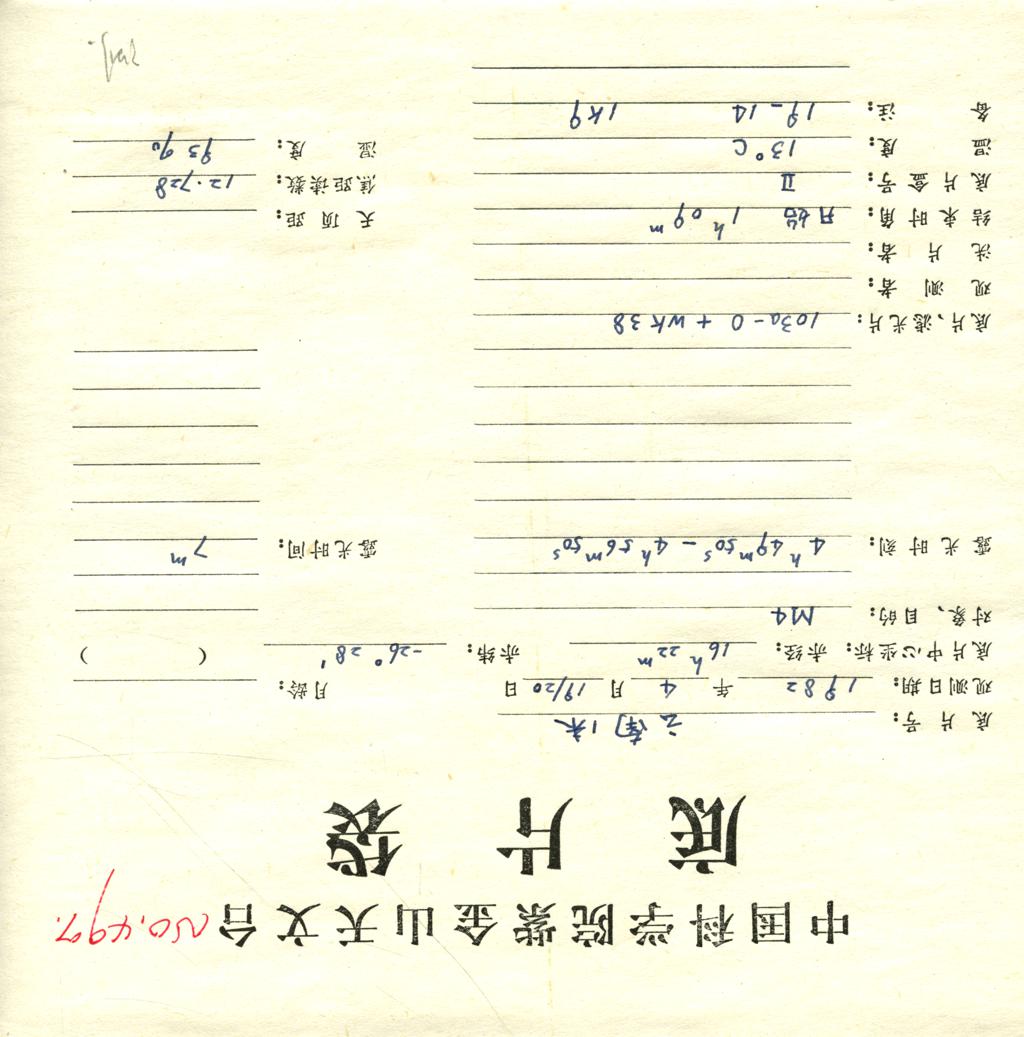 中国科学院紫金山天文台 NO.497.
底片袋
底片号: 云南1米
观测日期: 1982 年 4 月 19/20 日 月龄:
底片中心坐标: 赤经: 16h 22m 赤纬: -26° 28' ( )
对象、目的: M4
露光时刻: 4h 49m 50s - 4h 56m 50s 露光时间: 7m
底片、滤光片: 103a-O + WK38
观测者:
洗片者:
结束时角: 开始 1h 09m 天顶距:
底片盒号: II 焦距读数: 12.728
温度: 13°C 湿度: 93%
备注: 19-14 1K9